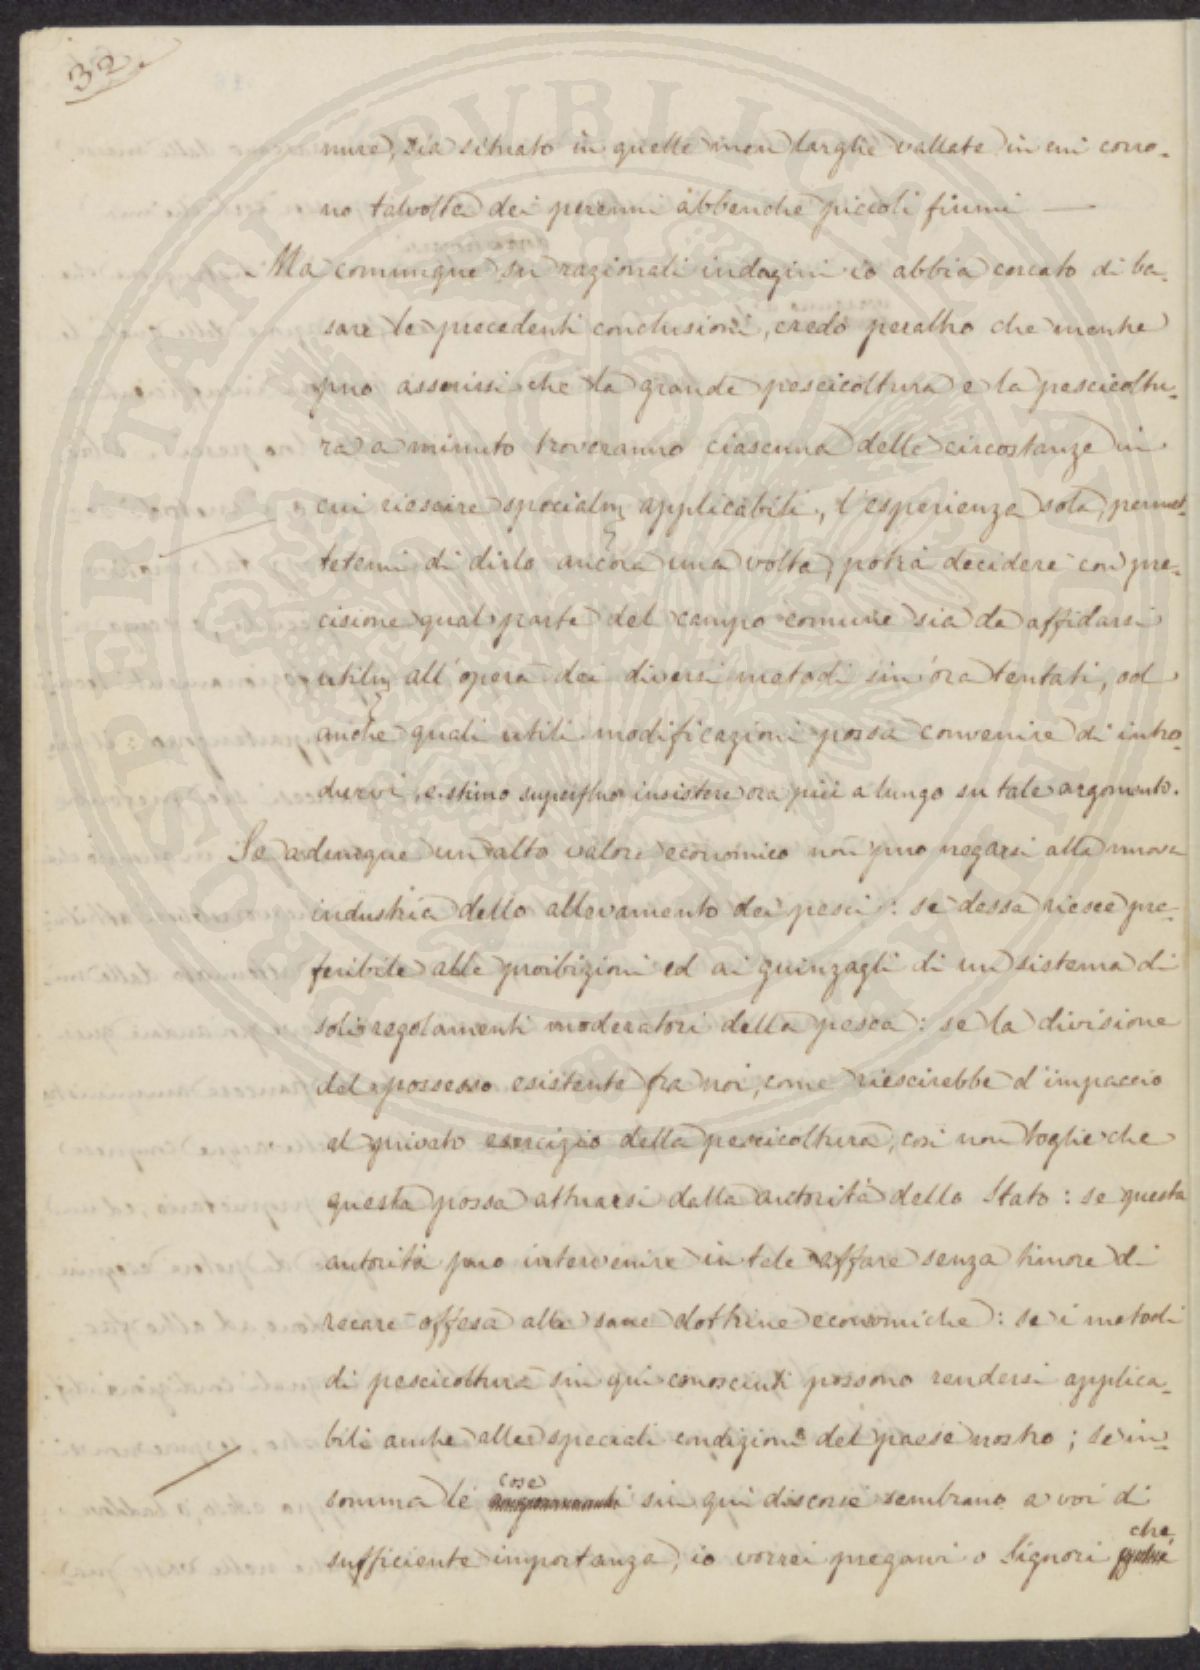 32.
nure, sia situato in quelle men larghe vallate in cui corro-
no talvolta dei perenni abbenche piccoli fiumi —
Ma comunque su razionali indagini io abbia cercato di ba-
sare le precedenti conclusioni, credo peraltro che mentre
puo asserirsi che la grande pescicoltura e la pescicoltu-
ra a minuto troveranno ciascuna delle circostanze in
cui riescire specialm applicabili, l'esperienza sola, permet-
tetemi di dirlo ancora una volta, potrà decidere con pre-
cisione qual parte del campo comune sia da affidarsi
utilm all'opera dei diversi metodi sin'ora tentati, od
anche quali utili modificazioni possa convenire di intro-
durvi, e stimo superfluo insistere ora più a lungo su tale argomento.
Se adunque un alto valore economico non puo negarsi alla nuova
industria dello allevamento dei pesci: se dessa riesce pre-
feribile alle proibizioni ed ai guinzagli di un sistema di
soli regolamenti moderatori della pesca: se la divisione
del possesso esistente fra noi, come riescirebbe d'impaccio
al privato esercizio della pescicoltura, così non toglie che
questa possa attuarsi dalla autorità dello Stato: se questa
autorità puo intervenire in tale affare senza timore di
recare offesa alle sane dottrine economiche: se i metodi
di pescicoltura sin qui conosciuti possono rendersi applica-
bili anche alle speciali condizioni del paese nostro; se in-
somma le cose sin qui discorse sembrano a voi di
sufficiente importanza, io vorrei pregarvi o Signori che
PROSPERITATI PVBLICAE